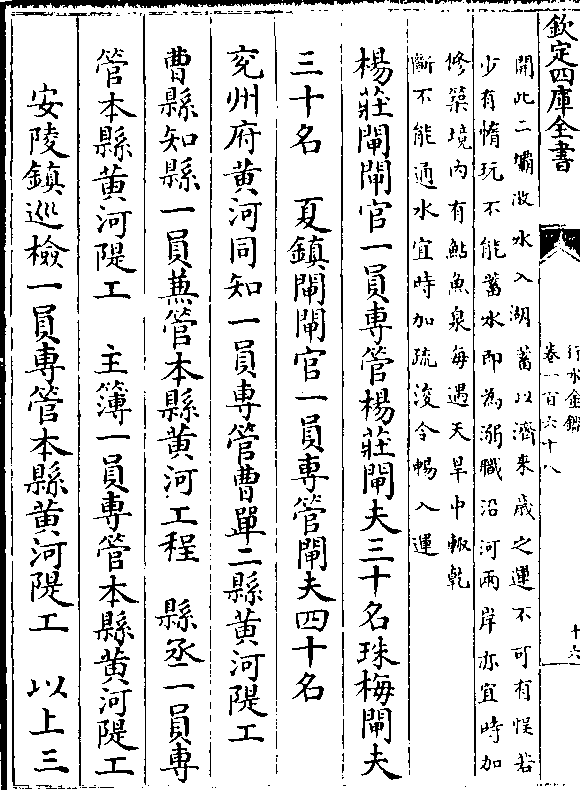 欽定四庫全書
行水金鑑
卷一百六十八
十六
開此二壩放水入湖蓄以濟來歲之運不可有悞若
少有惰玩不能蓄水即為溺職沿河兩岸亦宜時加
修築境內有鮎魚泉每遇天旱中輙乾
斷不能通水宜時加疏浚令暢入運
楊莊閘閘官一員專管楊莊閘夫三十名珠梅閘夫
三十名　夏鎮閘閘官一員專管閘夫四十名
兖州府黃河同知一員專管曹單二縣黃河隄工
曹縣知縣一員兼管本縣黃河工程　縣丞一員專
管本縣黃河隄工　主簿一員專管本縣黃河隄工
安陵鎮巡檢一員專管本縣黃河隄工　以上三